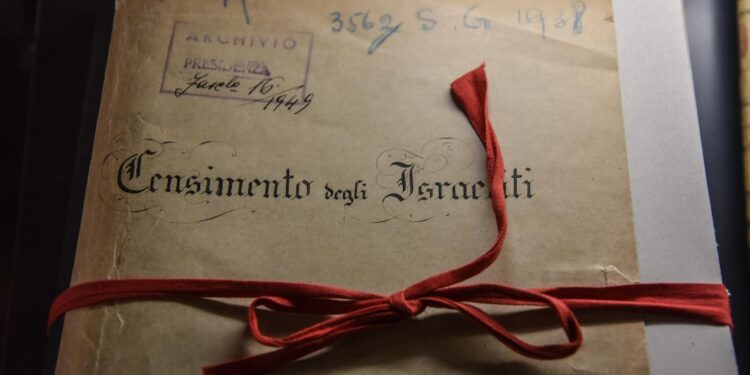 3562 S. G 1938
ARCHIVIO
PRESIDENZA
16
1949
Censimento degli Israeliti